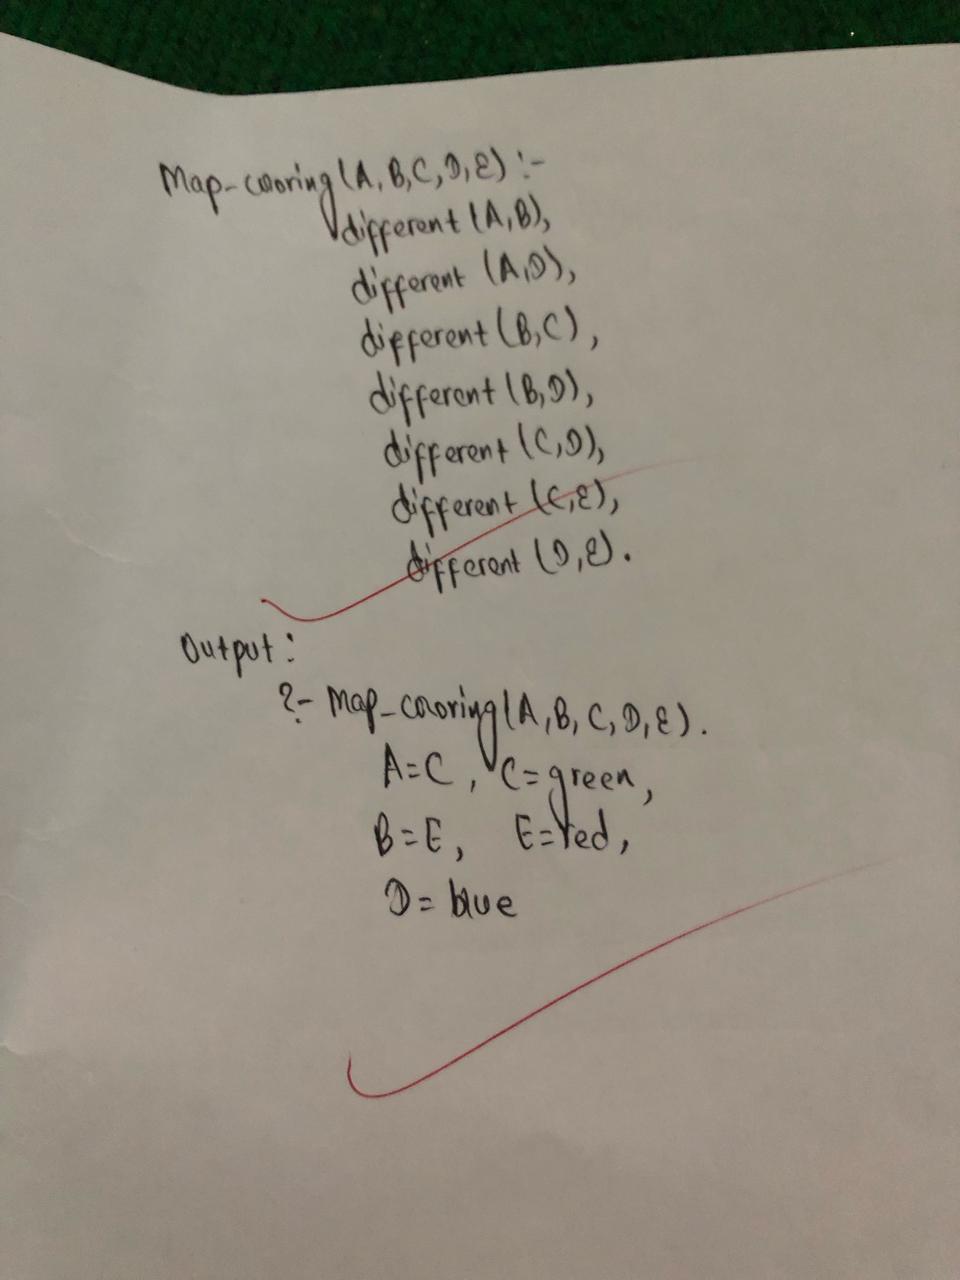 Map-coloring(A, B, C, D, E) :-
different (A, B),
different (A, D),
different (B, C),
different (B, D),
different (C, D),
different (C, E),
different (D, E).
Output:
?- Map_coloring(A, B, C, D, E).
A=C, C=green,
B=E, E=red,
D= blue